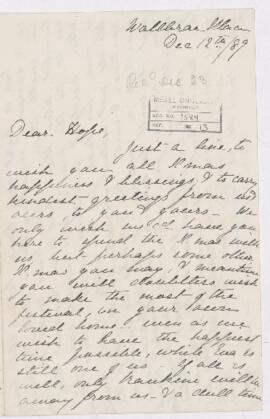 Dec 12th/89
Recd Dec 23
13
Dear Hope,
Just a line, to
wish you all Xmas
happiness & blessings, & to carry
kindest greetings from us &
ours, to you & yours - We
only wish we cd have you
here to spend the Xmas with
us, but perhaps some other
Xmas you may, & meantime
you will doubtless wish
to make the most of the
festival, in your own
loved home - even as we
wish to have the happiest
time possible, while Eva is
still one of us - If all is
well, only Frankine will be
away from us - & a dull time